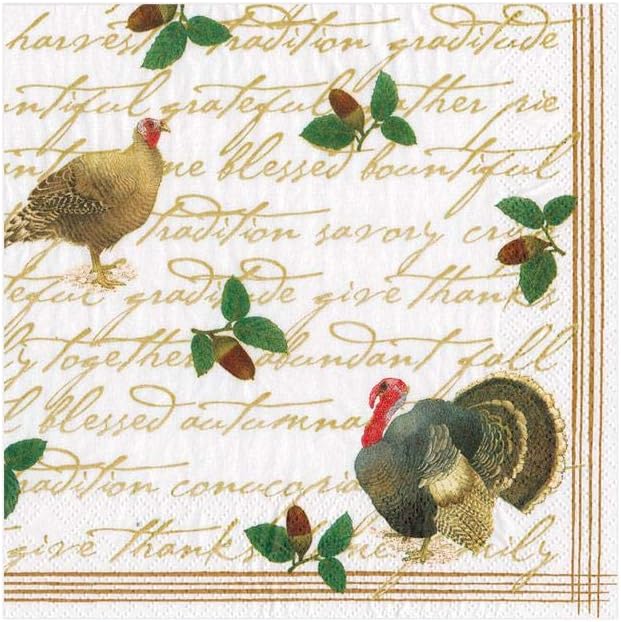 harvest tradition gratitude
ntiful grateful gather pie
me blessed bountiful
tradition savory
eful gratitude give thanks
y together abundant fall
l blessed autumna
radition cornucopia
give thanks home family